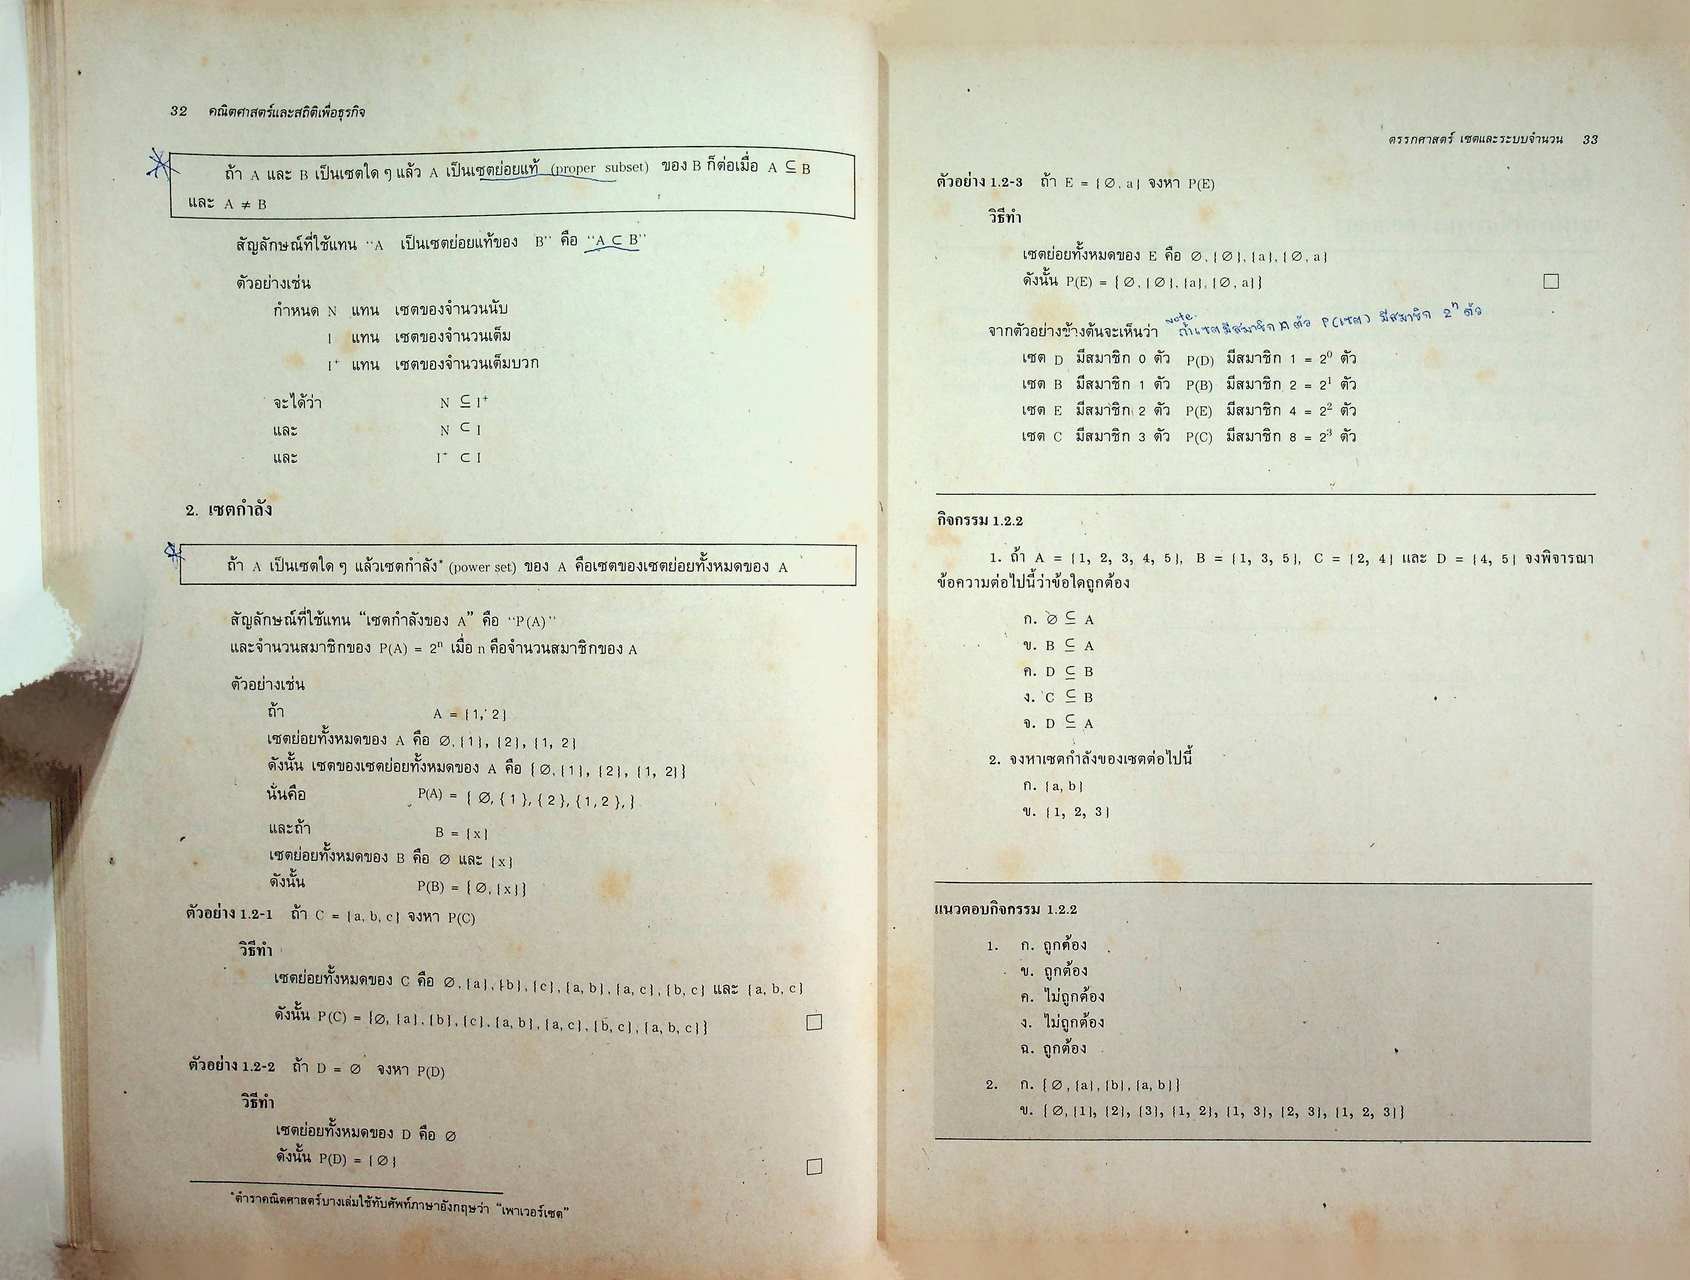 32 คณิตศาสตร์และสถิติเพื่อธุรกิจ
ถ้า A และ B เป็นเซตใด ๆ แล้ว A เป็นเซตย่อยแท้ (proper subset) ของ B ก็ต่อเมื่อ A ⊆ B
และ A ≠ B
สัญลักษณ์ที่ใช้แทน "A เป็นเซตย่อยแท้ของ B" คือ "A ⊂ B"
ตัวอย่างเช่น
กำหนด N แทน เซตของจำนวนนับ
I แทน เซตของจำนวนเต็ม
I⁺ แทน เซตของจำนวนเต็มบวก
จะได้ว่า N ⊆ I⁺
และ N ⊂ I
และ I⁺ ⊂ I
2. เซตกำลัง
ถ้า A เป็นเซตใด ๆ แล้วเซตกำลัง* (power set) ของ A คือเซตของเซตย่อยทั้งหมดของ A
สัญลักษณ์ที่ใช้แทน "เซตกำลังของ A" คือ "P(A)"
และจำนวนสมาชิกของ P(A) = 2ⁿ เมื่อ n คือจำนวนสมาชิกของ A
ตัวอย่างเช่น
ถ้า A = {1, 2}
เซตย่อยทั้งหมดของ A คือ ∅, {1}, {2}, {1, 2}
ดังนั้น เซตของเซตย่อยทั้งหมดของ A คือ {∅, {1}, {2}, {1, 2}}
นั่นคือ P(A) = { ∅, {1}, {2}, {1,2}, }
และถ้า B = {x}
เซตย่อยทั้งหมดของ B คือ ∅ และ {x}
ดังนั้น P(B) = {∅, {x}}
ตัวอย่าง 1.2-1 ถ้า C = {a, b, c} จงหา P(C)
วิธีทำ
เซตย่อยทั้งหมดของ C คือ ∅, {a}, {b}, {c}, {a, b}, {a, c}, {b, c} และ {a, b, c}
ดังนั้น P(C) = {∅, {a}, {b}, {c}, {a, b}, {a, c}, {b, c}, {a, b, c}} □
ตัวอย่าง 1.2-2 ถ้า D = ∅ จงหา P(D)
วิธีทำ
เซตย่อยทั้งหมดของ D คือ ∅
ดังนั้น P(D) = {∅} □
*ตำราคณิตศาสตร์บางเล่มใช้ทับศัพท์ภาษาอังกฤษว่า "เพาเวอร์เซต"
ตรรกศาสตร์ เซตและระบบจำนวน 33
ตัวอย่าง 1.2-3 ถ้า E = {∅, a} จงหา P(E)
วิธีทำ
เซตย่อยทั้งหมดของ E คือ ∅, {∅}, {a}, {∅, a}
ดังนั้น P(E) = {∅, {∅}, {a}, {∅, a}} □
Note.
จากตัวอย่างข้างต้นจะเห็นว่า ถ้าเซตมีสมาชิก n ตัว P(เซต) มีสมาชิก 2ⁿ ตัว
เซต D มีสมาชิก 0 ตัว P(D) มีสมาชิก 1 = 2⁰ ตัว
เซต B มีสมาชิก 1 ตัว P(B) มีสมาชิก 2 = 2¹ ตัว
เซต E มีสมาชิก 2 ตัว P(E) มีสมาชิก 4 = 2² ตัว
เซต C มีสมาชิก 3 ตัว P(C) มีสมาชิก 8 = 2³ ตัว
กิจกรรม 1.2.2
1. ถ้า A = {1, 2, 3, 4, 5}, B = {1, 3, 5}, C = {2, 4} และ D = {4, 5} จงพิจารณา
ข้อความต่อไปนี้ว่าข้อใดถูกต้อง
ก. ∅ ⊆ A
ข. B ⊆ A
ค. D ⊆ B
ง. C ⊆ B
จ. D ⊆ A
2. จงหาเซตกำลังของเซตต่อไปนี้
ก. {a, b}
ข. {1, 2, 3}
แนวตอบกิจกรรม 1.2.2
1. ก. ถูกต้อง
ข. ถูกต้อง
ค. ไม่ถูกต้อง
ง. ไม่ถูกต้อง
ฉ. ถูกต้อง
2. ก. {∅, {a}, {b}, {a, b}}
ข. {∅, {1}, {2}, {3}, {1, 2}, {1, 3}, {2, 3}, {1, 2, 3}}